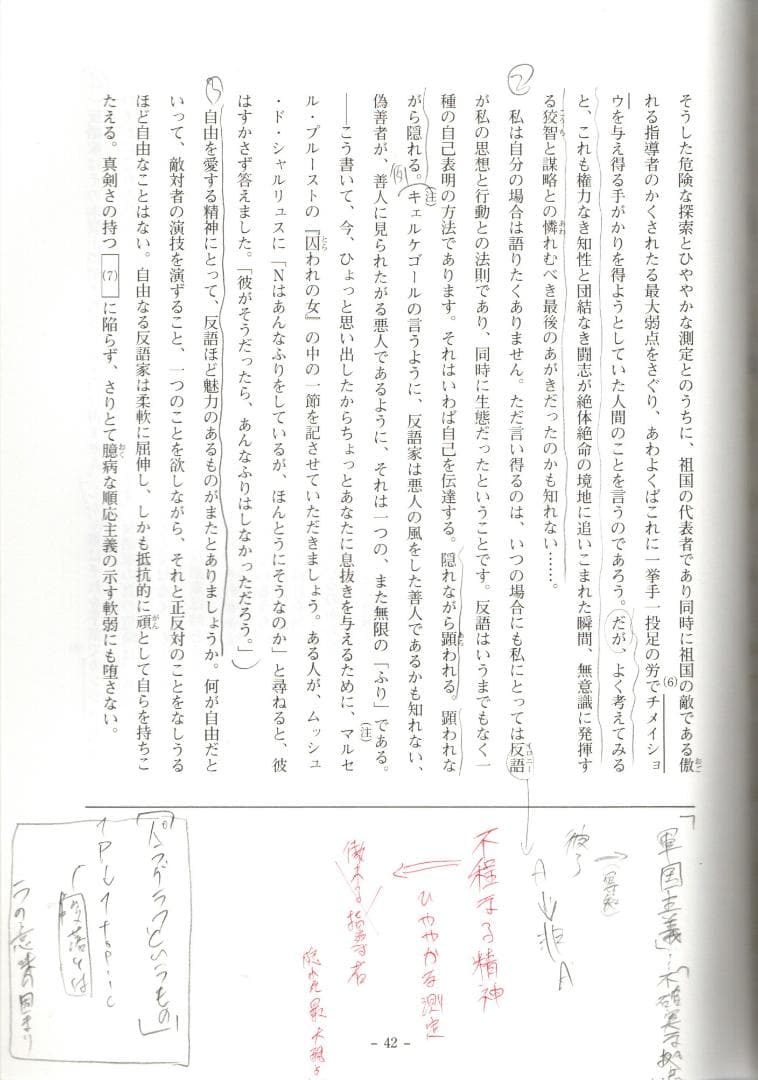 そうした危険な探索とひややかな測定とのうちに、祖国の代表者であり同時に祖国の敵である傲
れる指導者のかくされたる最大弱点をさぐり、あわよくばこれに一挙手一投足の労でチメイショ
ウを与え得る手がかりを得ようとしていた人間のことを言うのであろう。だが、よく考えてみる
と、これも権力なき知性と団結なき闘志が絶体絶命の境地に追いこまれた瞬間、無意識に発揮す
る狡智と謀略との憐れむべき最後のあがきだったのかも知れない……。
私は自分の場合は語りたくありません。ただ言い得るのは、いつの場合にも私にとっては反語
が私の思想と行動との法則であり、同時に生態だったということです。反語はいうまでもなく一
種の自己表明の方法であります。それはいわば自己を伝達する。隠れながら顕われる。顕われな
がら隠れる。キェルケゴールの言うように、反語家は悪人の風をした善人であるかも知れない、
偽善者が、善人に見られたがる悪人であるように、それは一つの、また無限の「ふり」である。
――こう書いて、今、ひょっと思い出したからちょっとあなたに息抜きを与えるために、マルセ
ル・プルーストの『囚われの女』の中の一節を記させていただきましょう。ある人が、ムッシュ
・ド・シャルリュスに「Nはあんなふりをしているが、ほんとうにそうなのか」と尋ねると、彼
はすかさず答えました。「彼がそうだったら、あんなふりはしなかっただろう。」
自由を愛する精神にとって、反語ほど魅力のあるものがまたとありましょうか。何が自由だと
いって、敵対者の演技を演ずること、一つのことを欲しながら、それと正反対のことをなしうる
ほど自由なことはない。自由なる反語家は柔軟に屈伸し、しかも抵抗的に頑として自らを持ちこ
たえる。真剣さの持つ (7) に陥らず、さりとて臆病な順応主義の示す軟弱にも堕さない。
(6)
(注)
(注)
おご
こうち
あわ
イロニー
あら
とら
がん
おく
②
例
③
「軍国主義」…不確実な
彼了
A→非A
不逞なる精神
ひややかな測定
傲れる指導者
隠れた最大弱
「パラグラフというもの」
1P1topic
段落とは
1つの意味の固まり
- 42 -